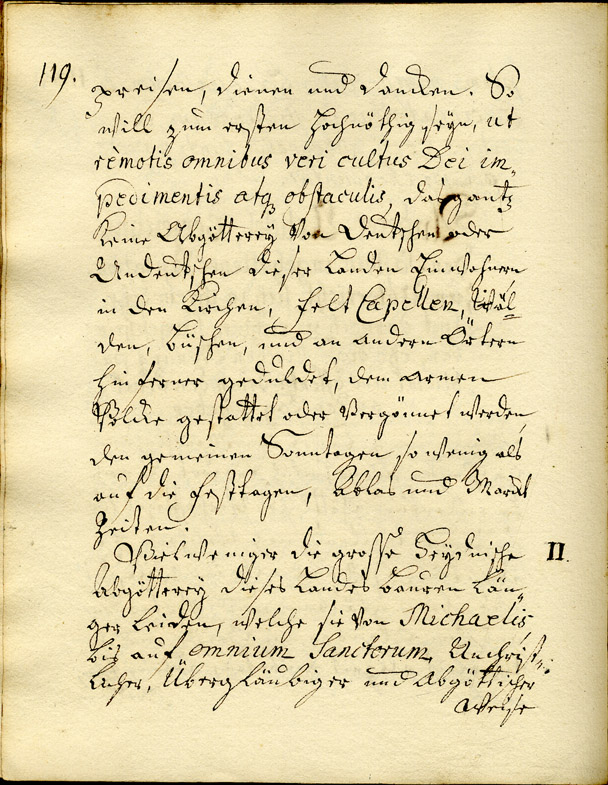 119.
preisen, dienen und dancken. So
will zum ersten hochnöthig seyn, ut
remotis omnibus veri cultus Dei im-
pedimentis atq; obstaculis, das gantz
keine Abgötterey von Deutschen oder
Undeutschen dieser Landen Einwohnern
in den Kirchen, felt Capellen, Wäl-
den, Büschen, und an andern Örtern
hin ferner geduldet, dem armen
Volcke gestattet oder vergönnet werden,
den gemeinen Sonntagen so wenig als
auf die festtagen, Ablas und Marckt
Zeiten.
Vielweniger die grosse Heydnische II.
Abgötterey dieses Landes bauren Län-
ger leiden, welche sie von Michaelis
bis auf omnium Sanctorum, Unchrist-
licher, Übergläubiger und Abgötticher
Weise